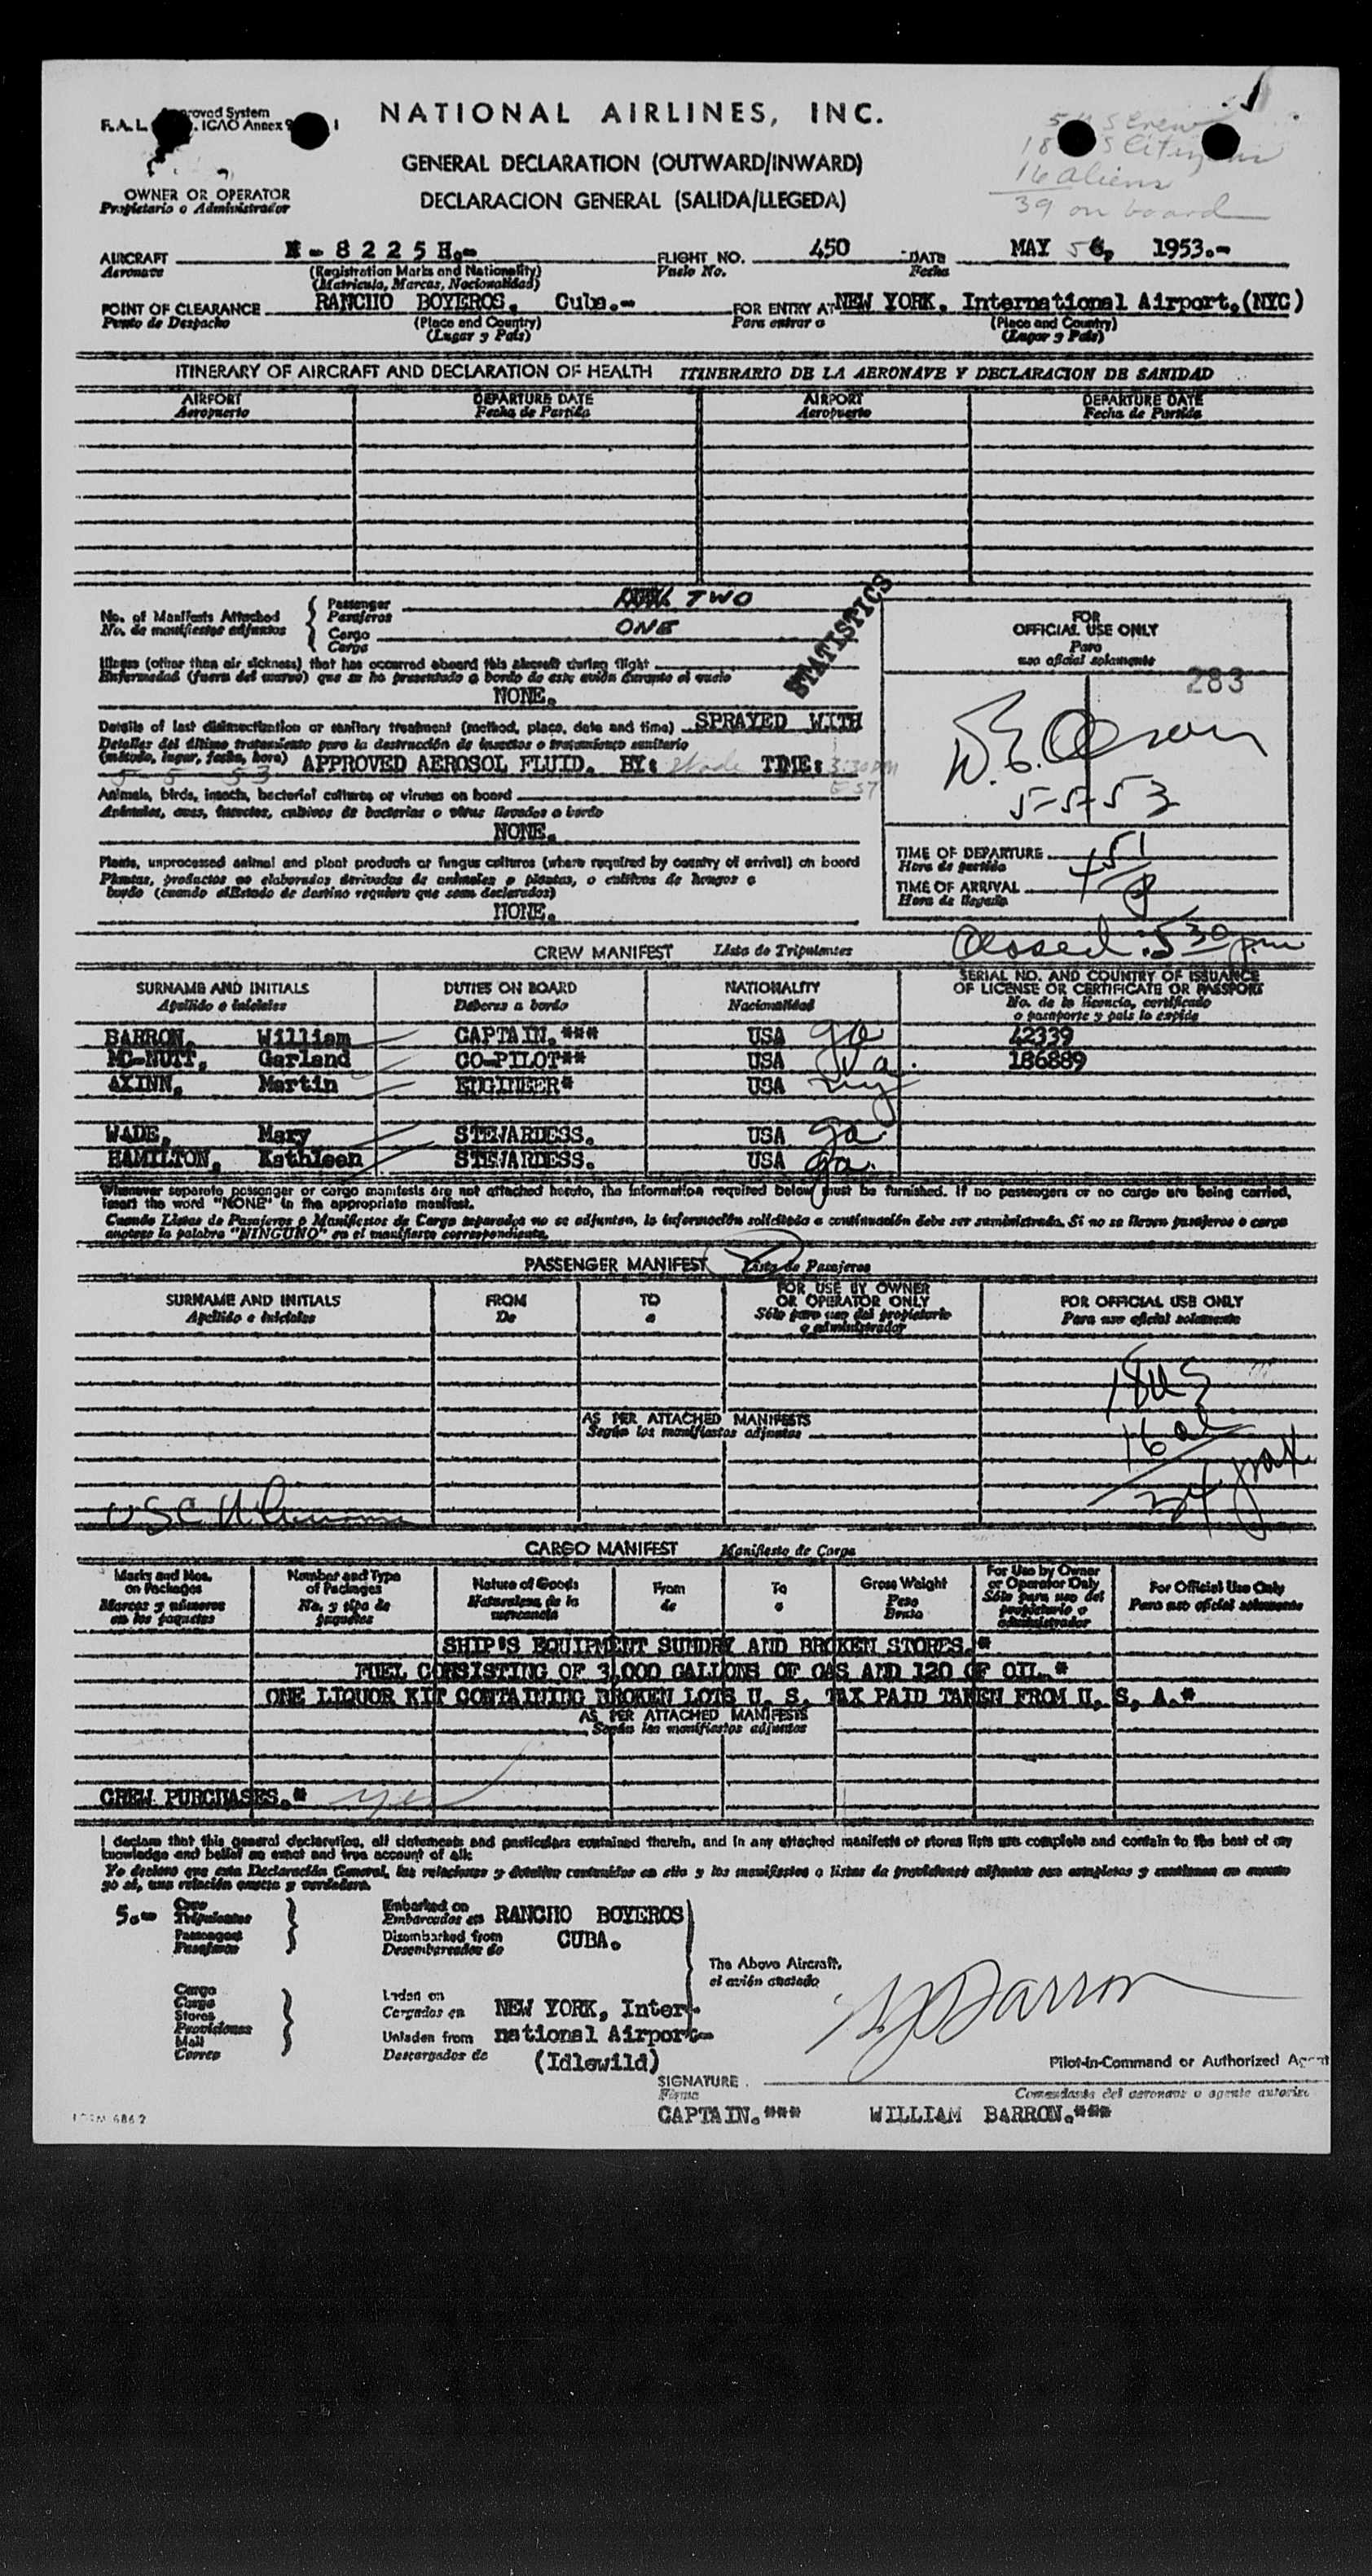 NATIONAL AIRLINES, INC.
F.A.L. ICAO Annex 9
GENERAL DECLARATION (OUTWARD/INWARD)
DECLARACION GENERAL (SALIDA/LLEGEDA)
18 S Citizens
16 aliens
39 on board
OWNER OR OPERATOR
Propietario o Administrador
AIRCRAFT N-8225H.- FLIGHT NO. 450 DATE MAY 5 1953.-
Aeronave (Registration Marks and Nationality) Vuelo No. Fecha
(Matricula, Marcas, Nacionalidad)
POINT OF CLEARANCE RANCHO BOYEROS, Cuba.- FOR ENTRY AT NEW YORK, International Airport,(NYC)
Punto de Despacho (Place and Country) Para entrar a (Place and Country)
(Lugar y Pais) (Lugar y Pais)
ITINERARY OF AIRCRAFT AND DECLARATION OF HEALTH ITINERARIO DE LA AERONAVE Y DECLARACION DE SANIDAD
AIRPORT DEPARTURE DATE AIRPORT DEPARTURE DATE
Aeropuerto Fecha de Partida Aeropuerto Fecha de Partida
No. of Manifests Attached Passenger TWO
No. de manifiestos adjuntos Pasajeros
Cargo ONE
Carga
STATISTICS
FOR
OFFICIAL USE ONLY
Para
uso oficial solamente
283
Illness (other than air sickness) that has occurred aboard this aircraft during flight
Enfermedad (fuera del mareo) que se ha presentado a bordo de este avión durante el vuelo
NONE.
Details of last disinsectization or sanitary treatment (method, place, date and time) SPRAYED WITH
Detalles del último tratamiento para la destrucción de insectos o tratamiento sanitario
(método, lugar, fecha, hora) APPROVED AEROSOL FLUID. BY: Wade TIME: 3:30 PM
5 - 5 - 53 EST
5-5-53
Animals, birds, insects, bacterial cultures or viruses on board
Animales, aves, insectos, cultivos de bacterias o virus llevados a bordo
NONE.
Plants, unprocessed animal and plant products or fungus cultures (where required by country of arrival) on board
Plantas, productos no elaborados derivados de animales o plantas, o cultivos de hongos a
bordo (cuando elEstado de destino requiere que sean declarados)
NONE.
TIME OF DEPARTURE
Hora de partida
TIME OF ARRIVAL 451
Hora de llegada
Closed: 530 pm
CREW MANIFEST Lista de Tripulantes
SURNAME AND INITIALS DUTIES ON BOARD NATIONALITY SERIAL NO. AND COUNTRY OF ISSUANCE
OF LICENSE OR CERTIFICATE OR PASSPORT
Apellido e iniciales Deberes a bordo Nacionalidad No. de la licencia, certificado
o pasaporte y pais lo expide
BARRON, William CAPTAIN.*** USA ga 42339
MC-NUTT, Garland CO-PILOT** USA 186889
AXINN, Martin ENGINEER* USA ny
WADE, Mary STEWARDESS. USA ga.
HAMILTON, Kathleen STEWARDESS. USA ga.
Whenever separate passenger or cargo manifests are not attached hereto, the information required below must be furnished. If no passengers or no cargo are being carried,
insert the word "NONE" in the appropriate manifest.
Cuando Listas de Pasajeros o Manifiestos de Carga separados no se adjunten, la información solicitada a continuación debe ser suministrada. Si no se llevan pasajeros o carga
anotese la palabra "NINGUNO" en el manifiesto correspondiente.
PASSENGER MANIFEST Lista de Pasajeros
SURNAME AND INITIALS FROM TO FOR USE BY OWNER
OR OPERATOR ONLY FOR OFFICIAL USE ONLY
Apellido e iniciales De a Sólo para uso del propietario
o administrador Para uso oficial solamente
18 US
AS PER ATTACHED MANIFESTS
Según los manifiestos adjuntos
16 al
34 pax
CARGO MANIFEST Manifiesto de Carga
Marks and Nos.
on Packages
Marcas y números
en los paquetes
Number and Type
of Packages
No. y tipo de
paquetes
Nature of Goods
Naturaleza de la
mercancía
From
de
To
a
Gross Weight
Peso
Bruto
For Use by Owner
or Operator Only
Sólo para uso del
propietario o
administrador
For Official Use Only
Para uso oficial solamente
SHIP'S EQUIPMENT SUNDRY AND BROKEN STORES.*
FUEL CONSISTING OF 3,000 GALLONS OF GAS AND 120 OF OIL.*
ONE LIQUOR KIT CONTAINING BROKEN LOTS U. S. TAX PAID TAKEN FROM U. S. A.*
AS PER ATTACHED MANIFESTS
Según los manifiestos adjuntos
CREW PURCHASES.* yes
I declare that this general declaration, all statements and particulars contained therein, and in any attached manifests or stores lists are complete and contain to the best of my
knowledge and belief an exact and true account of all:
Yo declaro que esta Declaración General, las relaciones y detalles contenidos en ella y los manifiestos o listas de provisiones adjuntos son completos y contienen en cuanto
yo sé, una relación exacta y verdadera.
5.- Crew
Tripulantes
Passengers
Pasajeros
Embarked on
Embarcados en RANCHO BOYEROS
Disembarked from CUBA.
Desembarcados de
The Above Aircraft,
el avión anotado
Cargo
Carga
Stores
Provisiones
Mail
Correo
Laden on
Cargados en NEW YORK, Inter-
Unladen from national Airport-
Descargados de (Idlewild)
W Barron
Pilot-in-Command or Authorized Agent
SIGNATURE
Firma Comandante del aeronave o agente autoriz
CAPTAIN.*** WILLIAM BARRON.***
FORM 6862